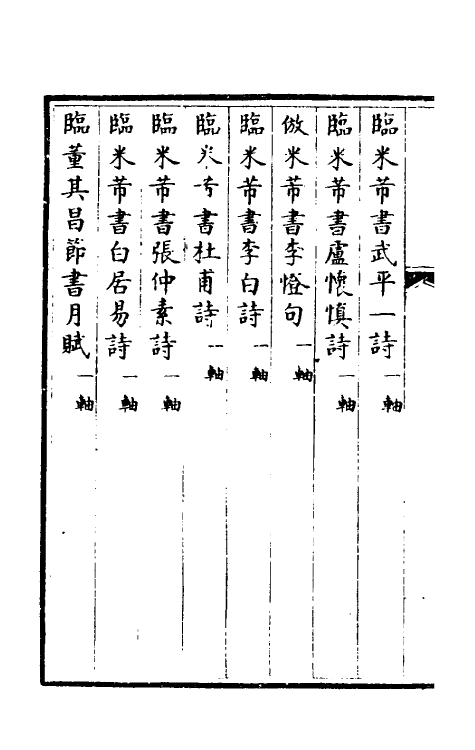 臨米芾書武平一詩一軸
臨米芾書盧懷慎詩一軸
倣米芾書李憕句一軸
臨米芾書李白詩一軸
臨米芾書杜甫詩一軸
臨米芾書張仲素詩一軸
臨米芾書白居易詩一軸
臨董其昌節書月賦一軸